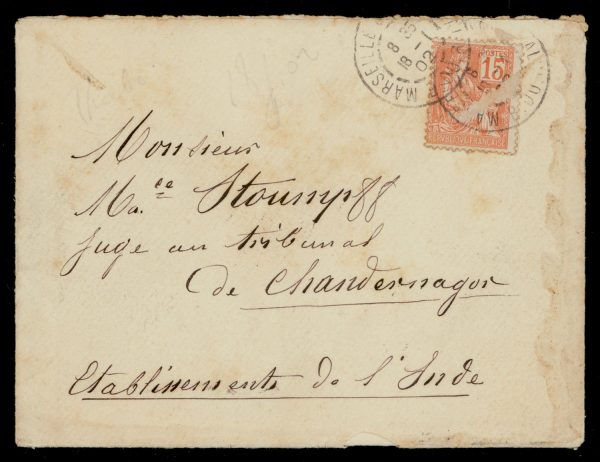 MARSEILLE
8
18
02
15
POSTES
MA
Monsieur
Ma.ce Stoumpff
Juge au tribunal
de Chandernagor
Etablissements de l'Inde